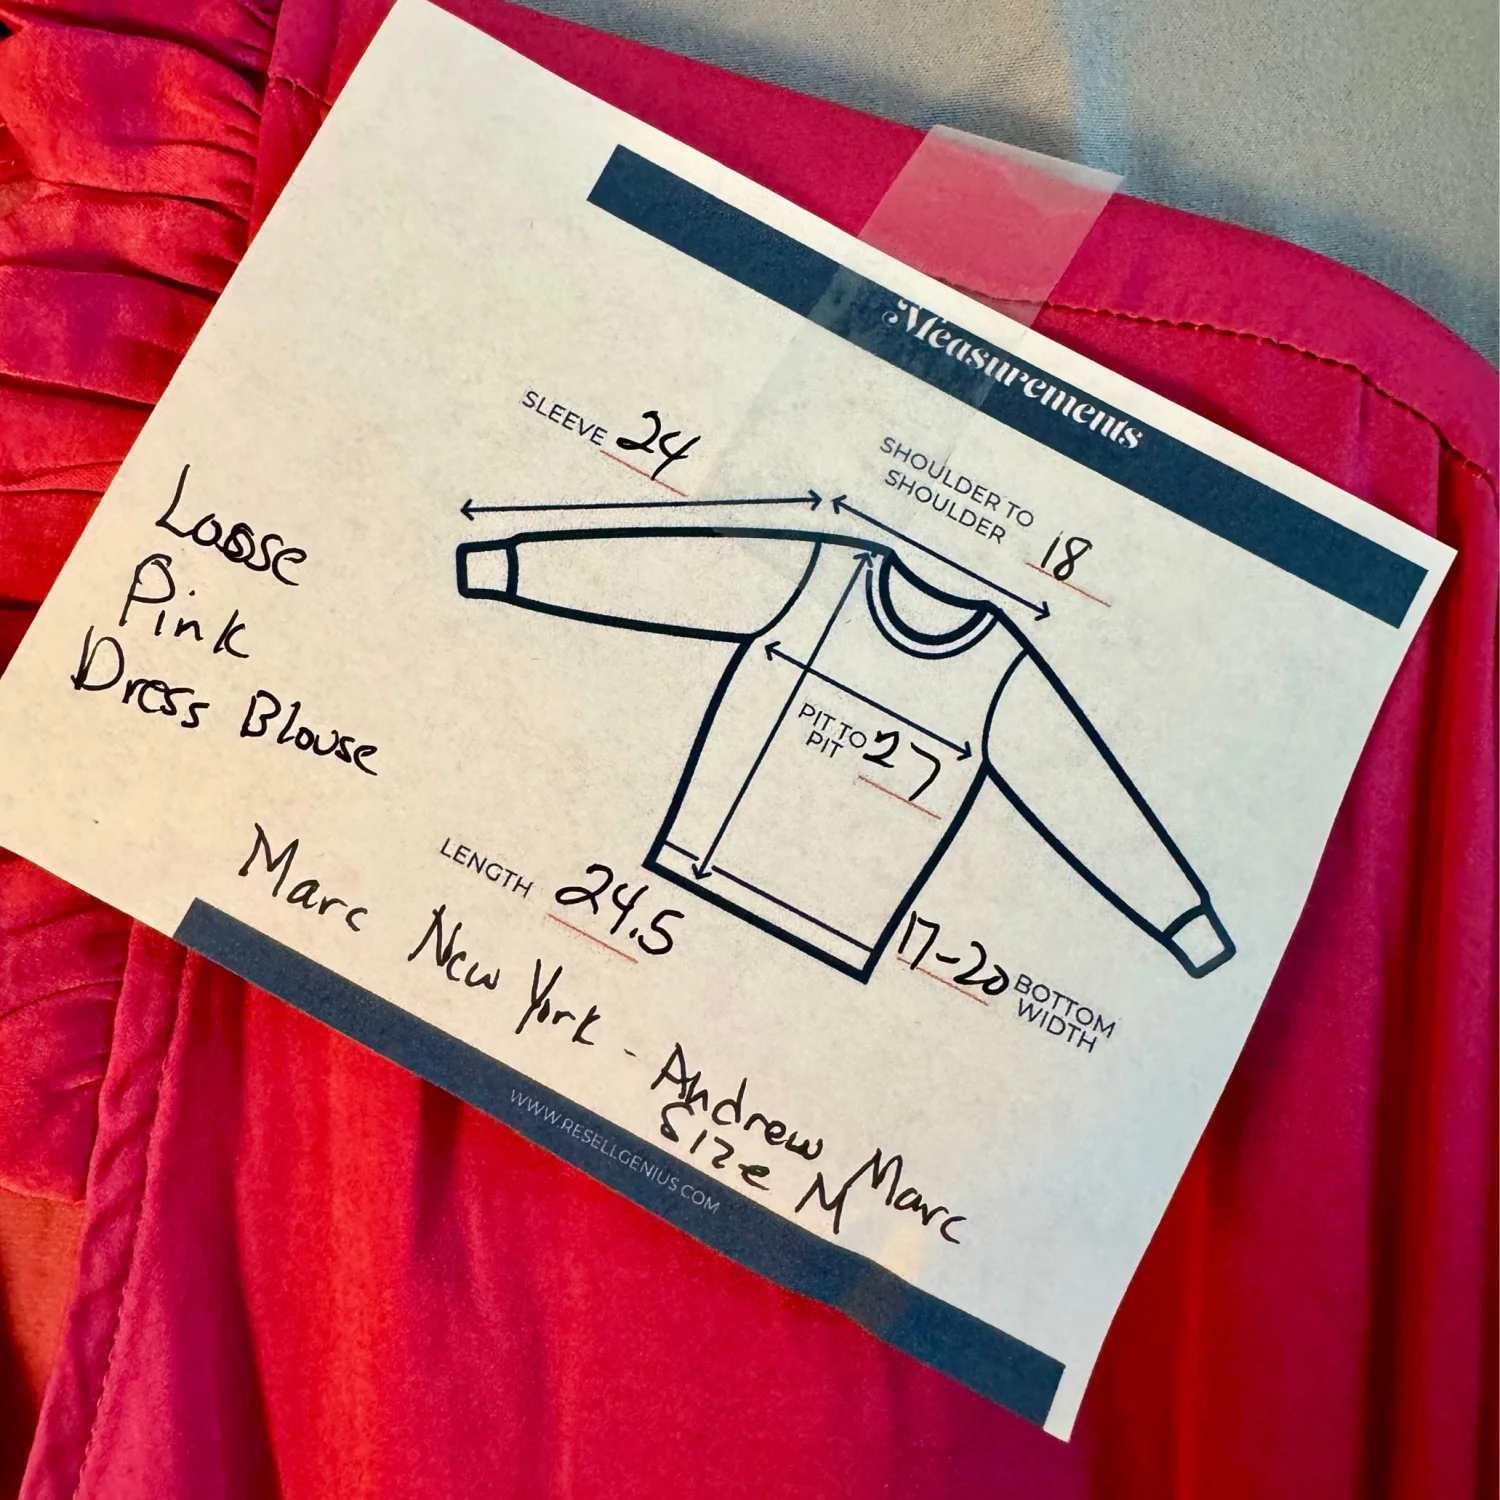 Measurements
SLEEVE 24
SHOULDER TO
SHOULDER 18
Loose
Pink
Dress Blouse
PIT TO
PIT 27
LENGTH 24.5
17-20 BOTTOM
WIDTH
Marc New York - Andrew Marc
Size M
WWW.RESELLGENIUS.COM